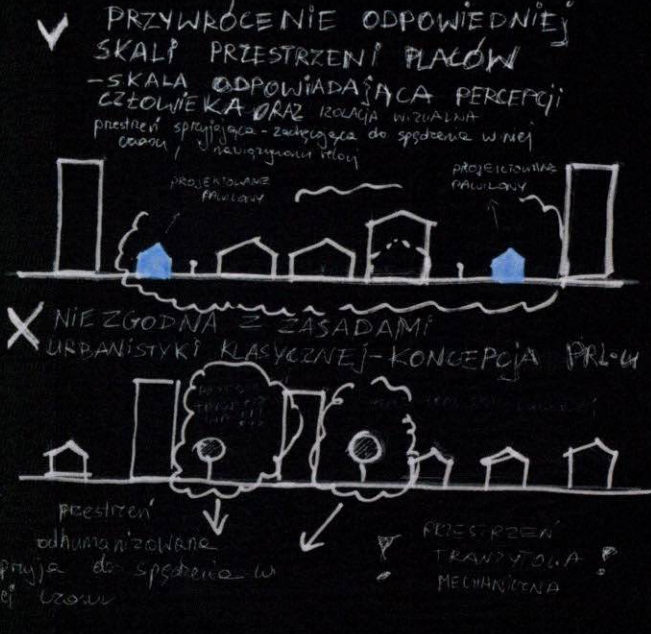 PRZYWRÓCENIE ODPOWIEDNIEJ
SKALI PRZESTRZENI PLACÓW
-SKALA ODPOWIADAJĄCA PERCEPCJI
CZŁOWIEKA ORAZ IZOLACJA WIZUALNA
przestrzeń sprzyjająca - zachęcająca do spędzenia w niej
czasu / nawiązywania relacji
PROJEKTOWANE
PAWILONY
PROJEKTOWANE
PAWILONY
NIEZGODNA Z ZASADAMI
URBANISTYKI KLASYCZNEJ-KONCEPCJA
przestrzeń
odhumanizowana
do spędzenia w
ej czasu
PRZESTRZEŃ
TRANZYTOWA
MECHANICZNA